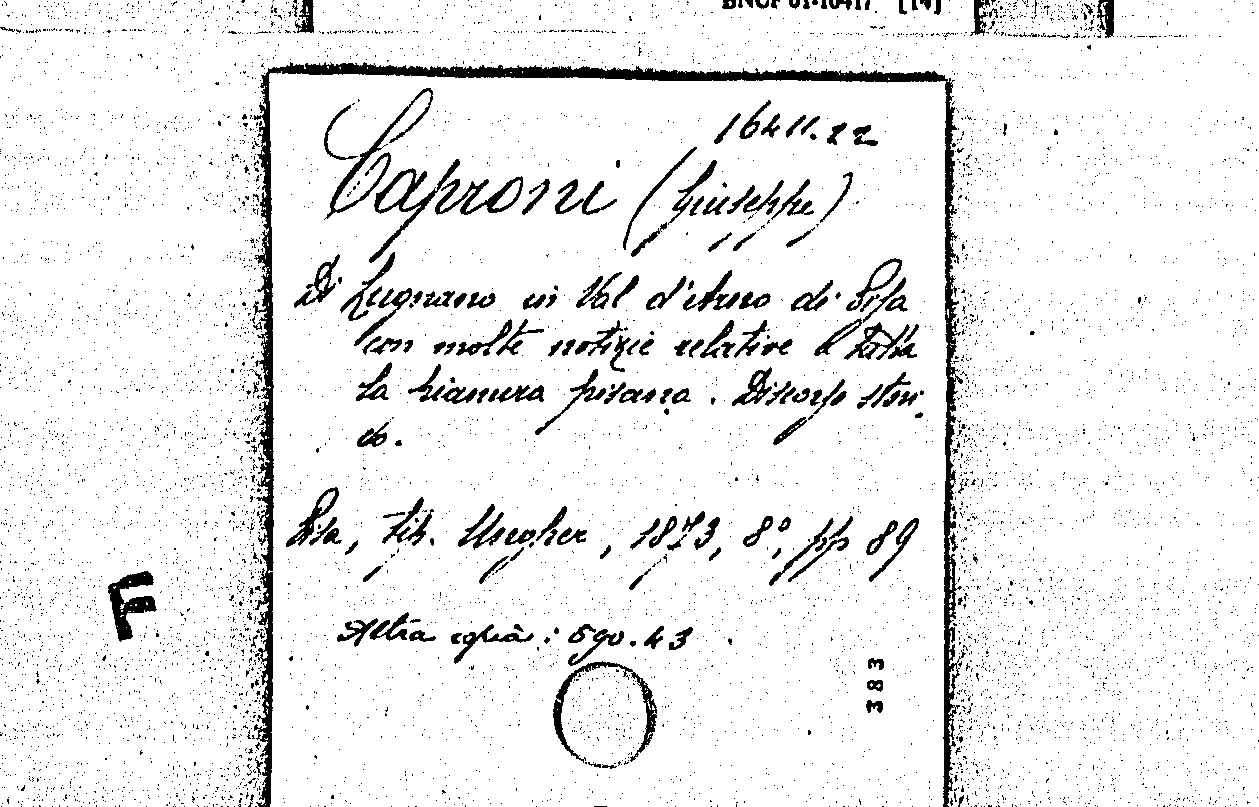 BNCF 01-10417 [14]
16411.22
Caproni (Giuseppe)
Di Lugnano in Val d'Arno di Pisa
con molte notizie relative a tutta
la pianura pisana. Discorso stori-
co.
Pisa, tip. Ungher, 1873, 8°, pp 89
Altra copia: 590.43
F
383